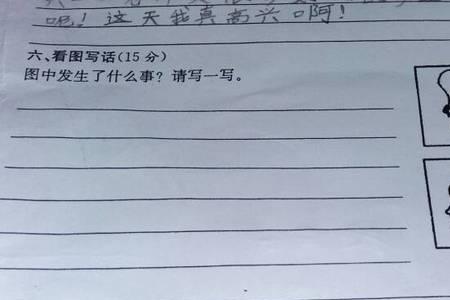 呢！这天我真高兴啊！
六、看图写话(15 分)
图中发生了什么事？请写一写。